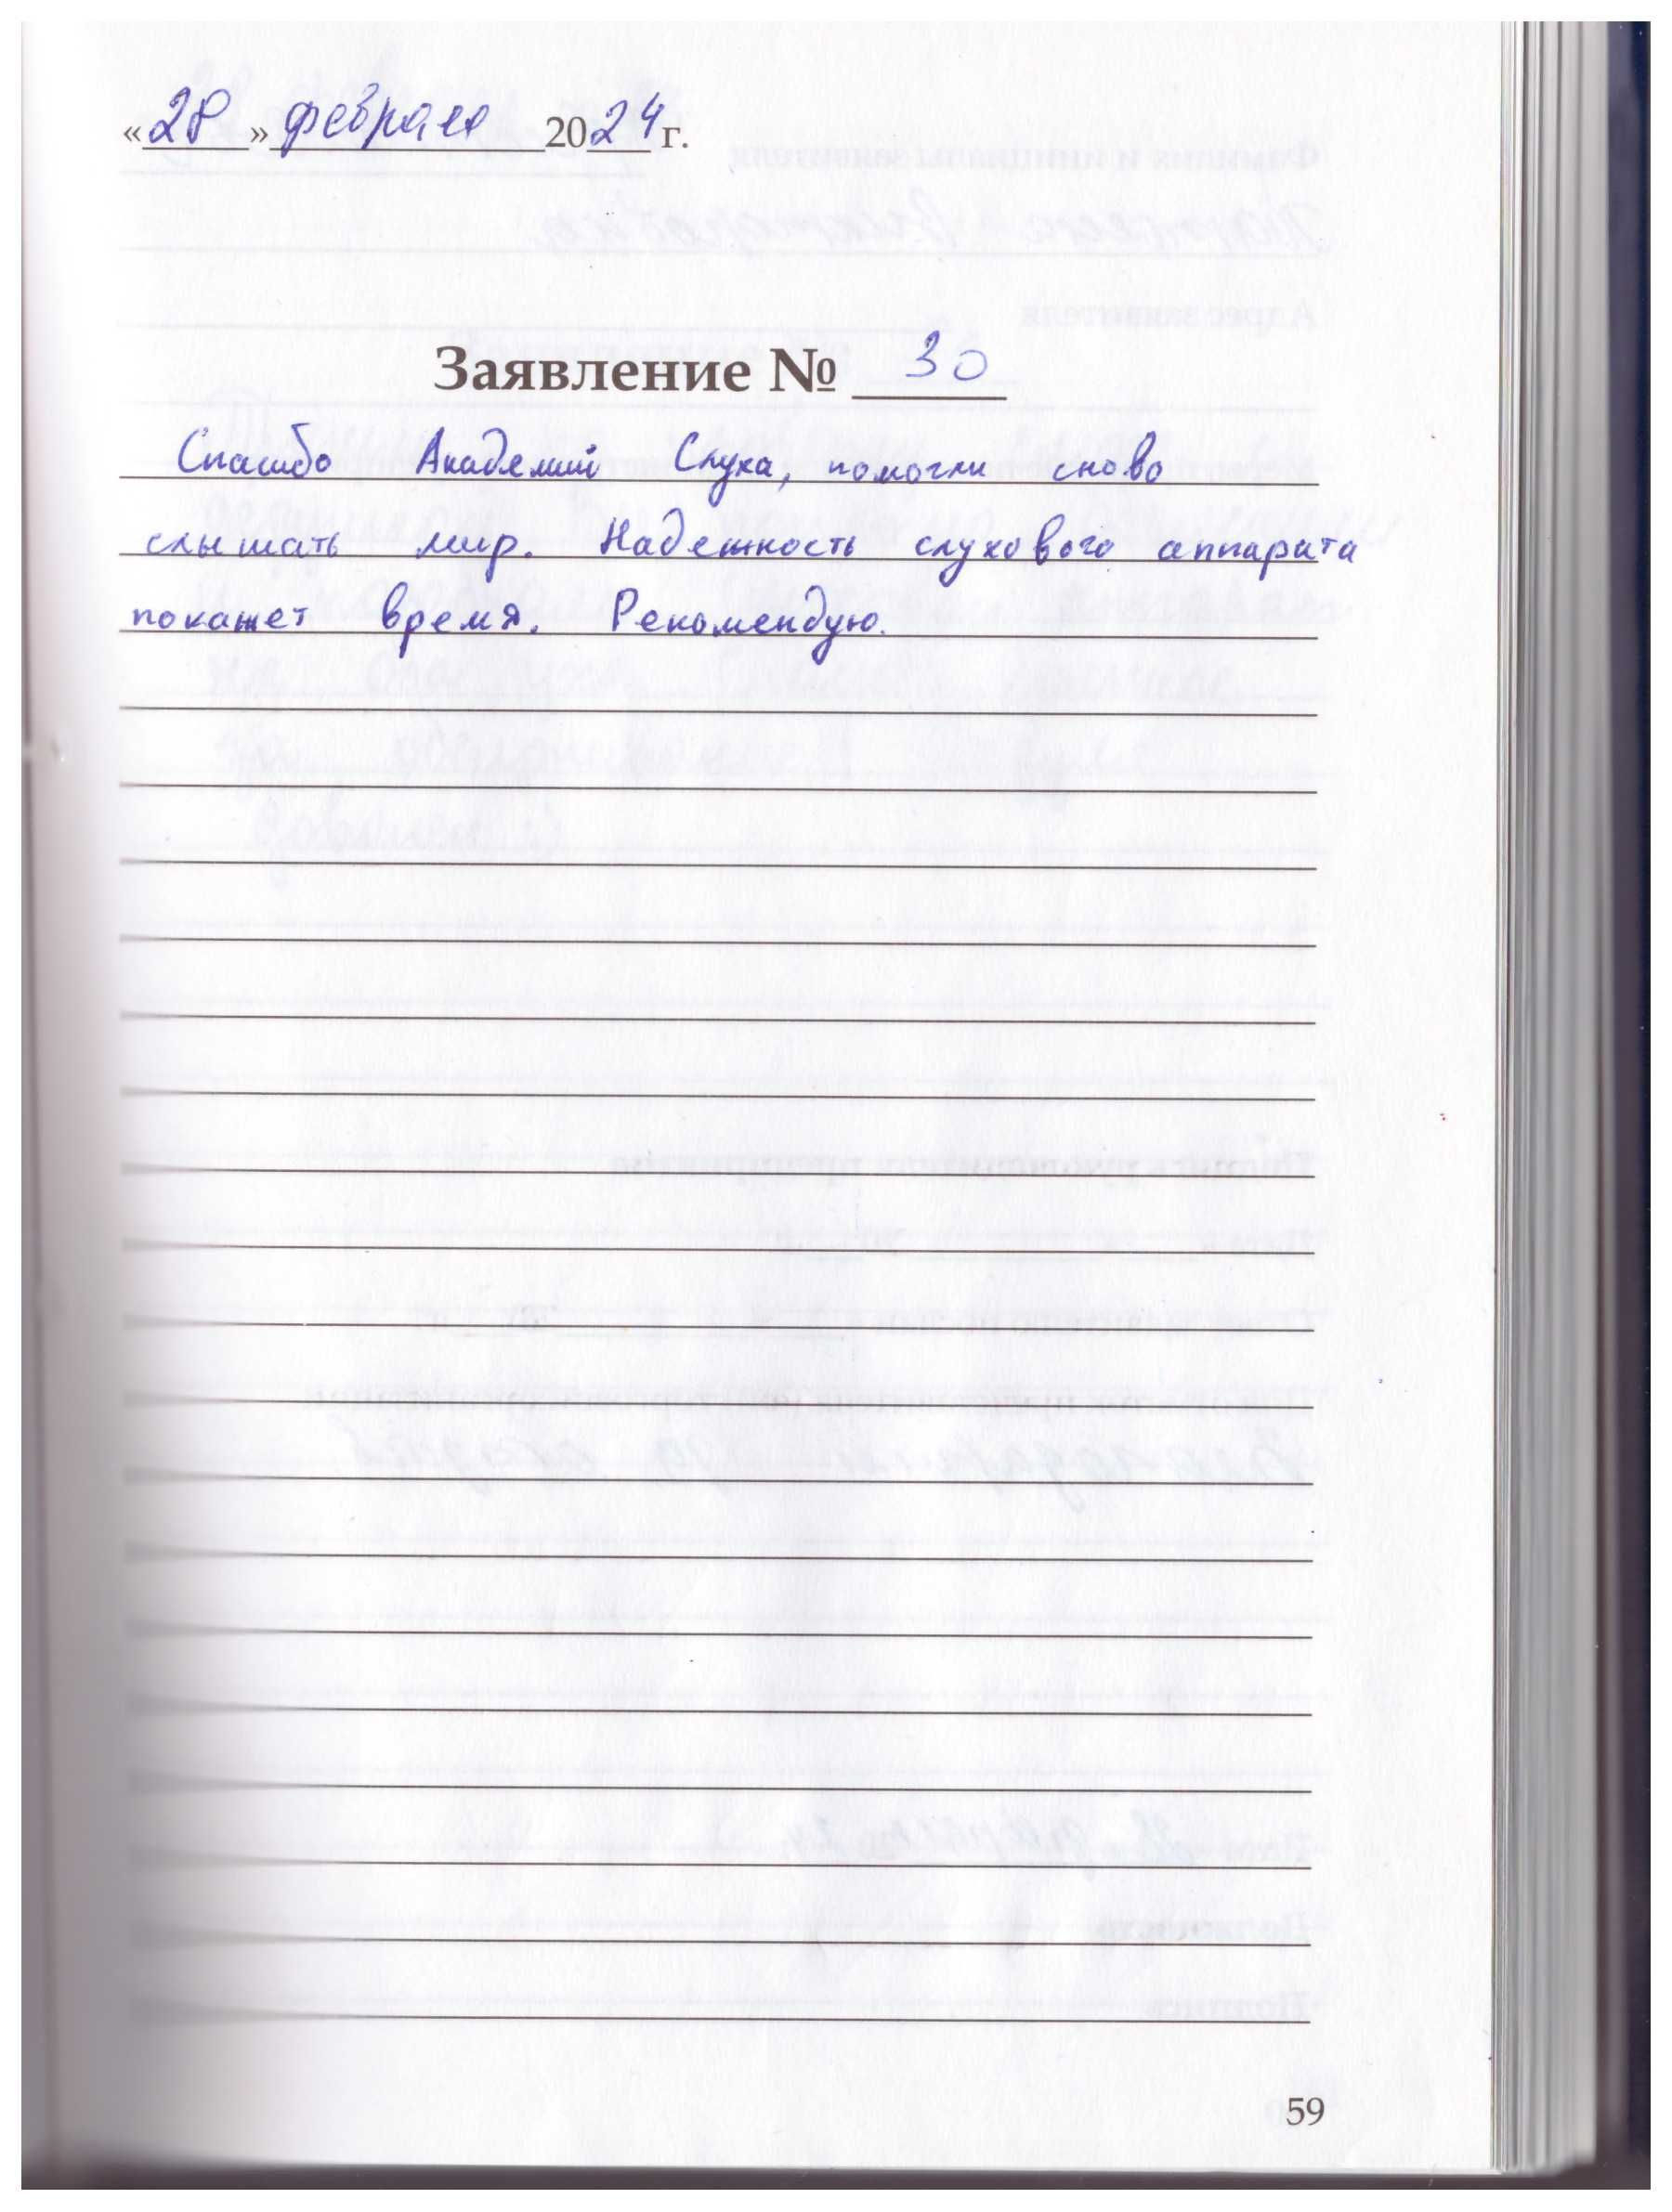 «28» февраля 2024 г.
Заявление № 30
Спасибо Академий Слуха, помогли сново
слышать мир. Надежность слухового аппарата
покажет время. Рекомендую.
59